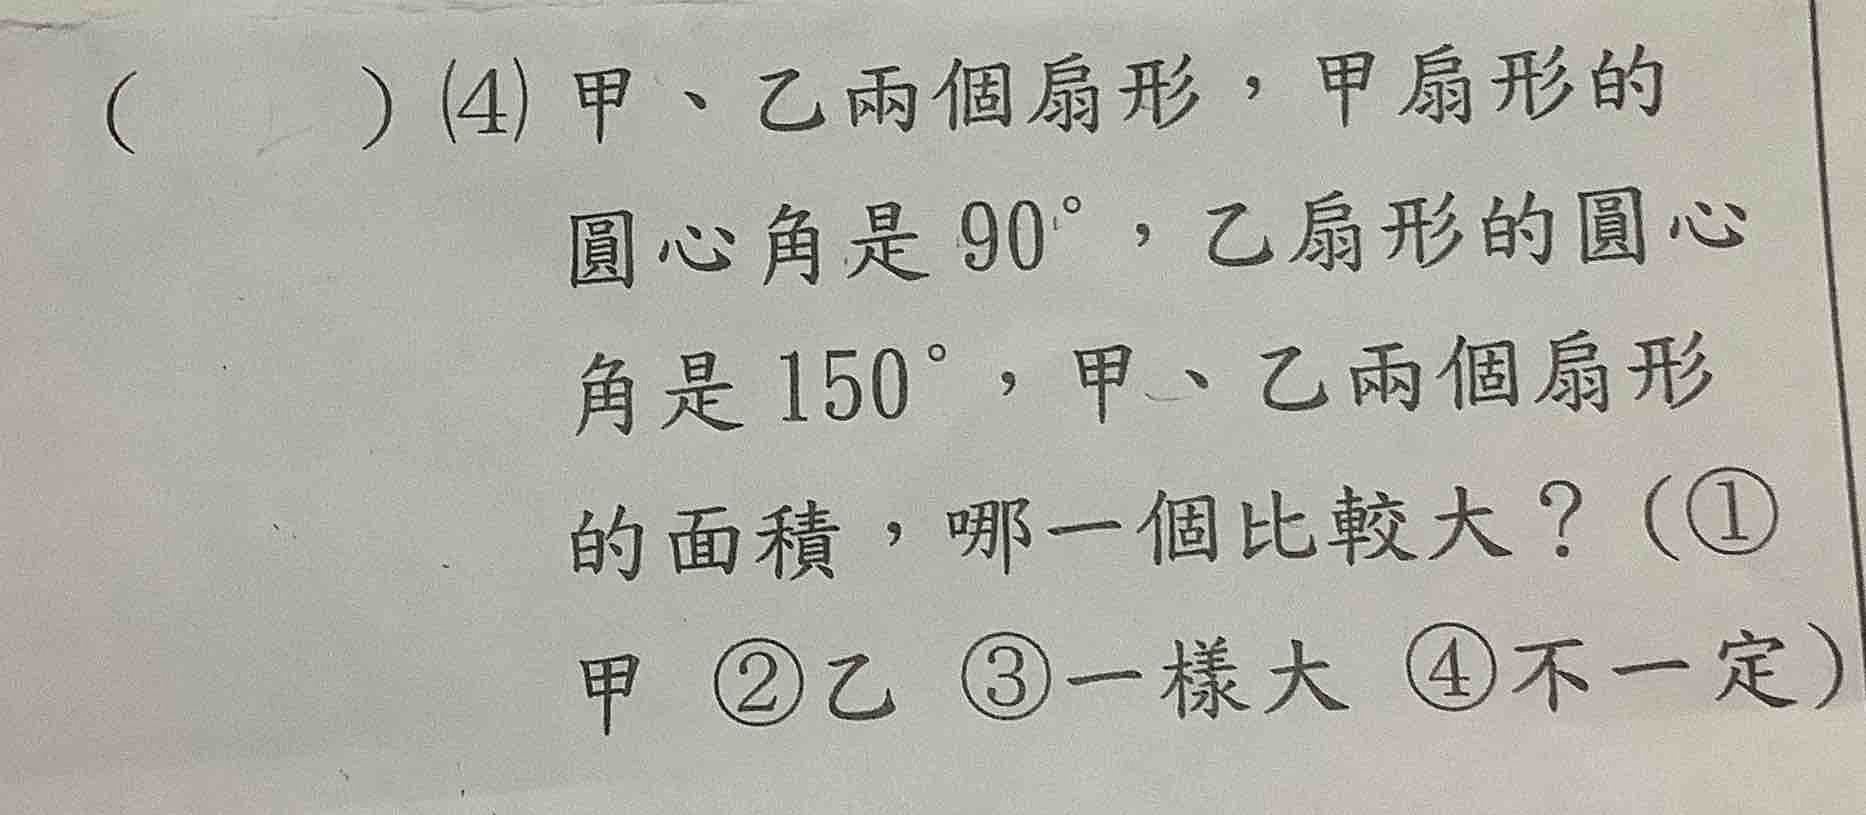 (　　) (4) 甲、乙兩個扇形，甲扇形的
圓心角是 90°，乙扇形的圓心
角是 150°，甲、乙兩個扇形
的面積，哪一個比較大？(①
甲 ②乙 ③一樣大 ④不一定)